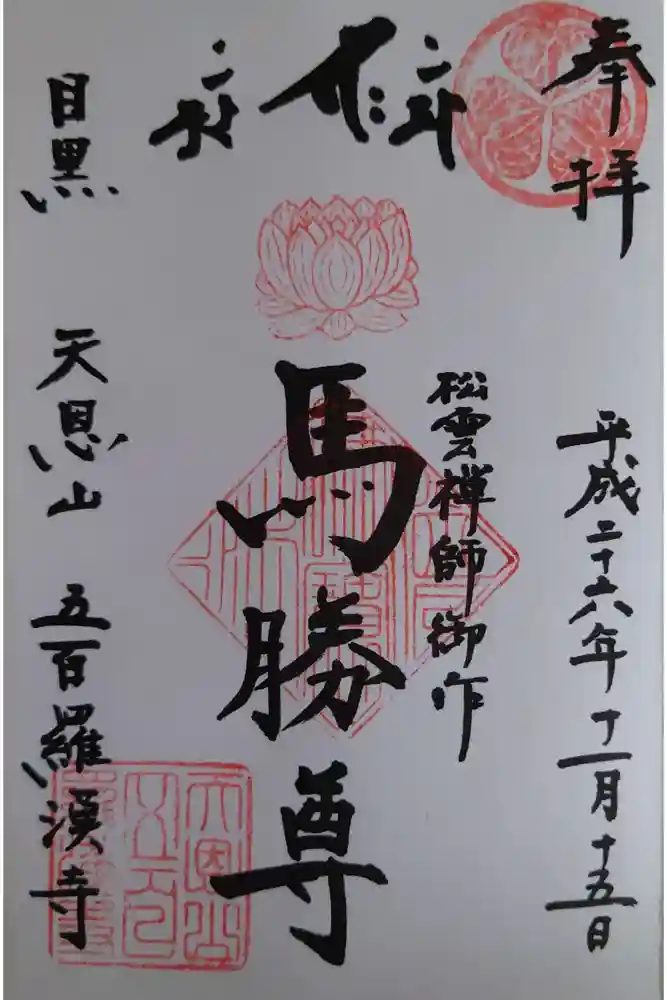 奉拝
平成二十六年十一月十五日
松雲禅師御作
馬勝尊
目黒
天恩山
五百羅漢寺